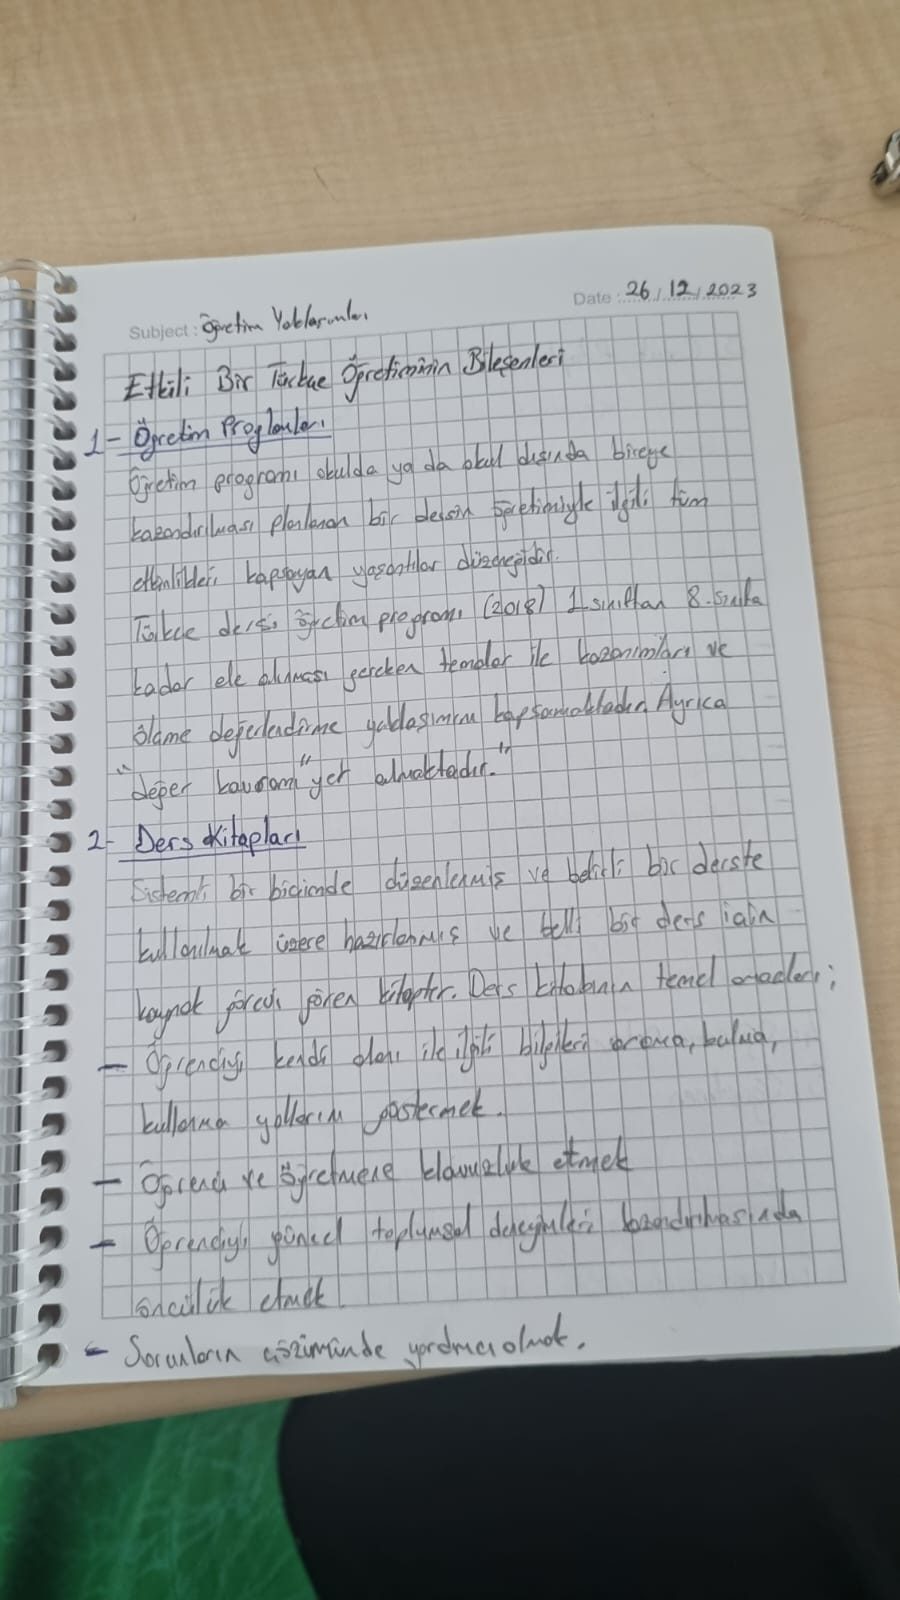 Subject: Öğretim Yaklaşımları
Date: 26/12/2023
Etkili Bir Türkçe Öğretiminin Bileşenleri
1- Öğretim Programları
Öğretim programı okulda ya da okul dışında bireye
kazandırılması planlanan bir dersin öğretimiyle ilgili tüm
etkinlikleri kapsayan yaşantılar düzeneğidir.
Türkçe dersi öğretim programı (2018) 1.sınıftan 8.sınıfa
kadar ele alınması gereken temalar ile kazanımları ve
ölçme değerlendirme yaklaşımını kapsamaktadır. Ayrıca
"değer kavramı" yer almaktadır."
2- Ders Kitapları
Sistemli bir biçimde düzenlenmiş ve belirli bir derste
kullanılmak üzere hazırlanmış ve belli bir ders için
kaynak görevi gören kitaptır. Ders kitabının temel amaçları;
- Öğrenciyi kendi alanı ile ilgili bilgileri arama, bulma,
kullanma yollarını göstermek.
- Öğrenci ve öğretmene klavuzluk etmek
- Öğrenciyi güncel toplumsal deneyimleri kazandırılmasında
öncülük etmek
- Sorunların çözümünde yardımcı olmak.